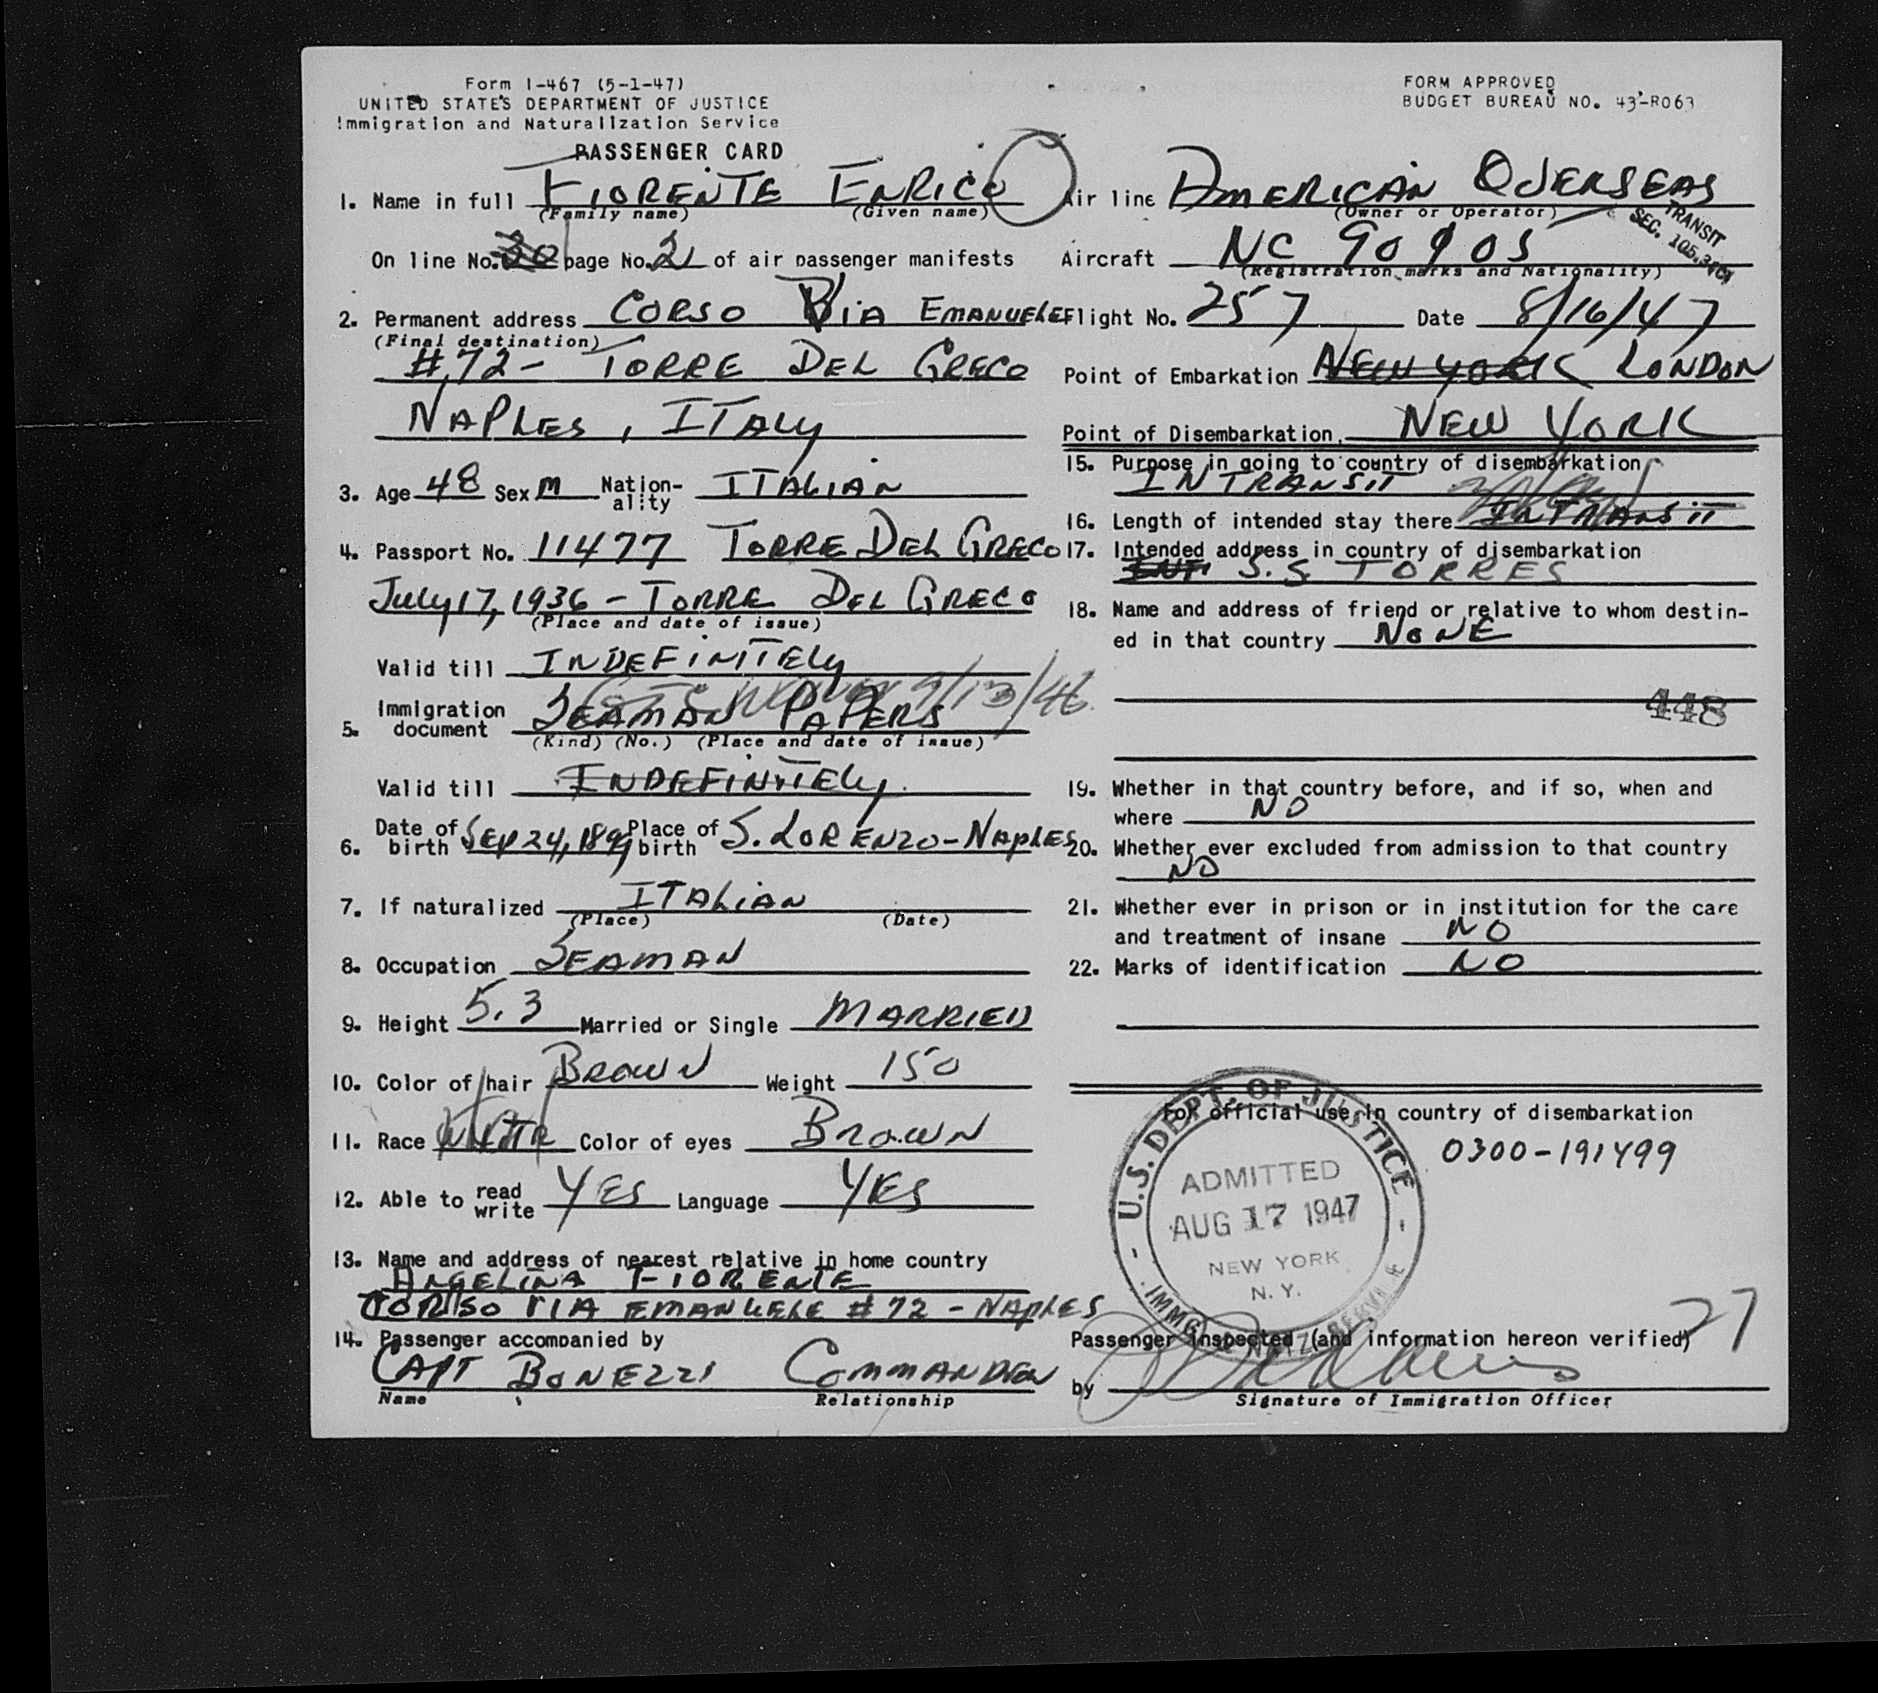 Form I-467 (5-1-47)
UNITED STATES DEPARTMENT OF JUSTICE
Immigration and Naturalization Service
PASSENGER CARD
FORM APPROVED
BUDGET BUREAU NO. 43-R063
1. Name in full FIORENTE ENRICO
(Family name) (Given name)
On line No. 20 page No. 2 of air passenger manifests
2. Permanent address CORSO VIA EMANUELE
(Final destination)
#72- TORRE DEL GRECO
NAPLES, ITALY
3. Age 48 Sex M Nation-ality ITALIAN
4. Passport No. 11477 TORRE DEL GRECO
July 17, 1936 - TORRE DEL GRECO
(Place and date of issue)
Valid till INDEFINITELY
9/13/46
5. Immigration document SEAMAN PAPERS
(Kind) (No.) (Place and date of issue)
Valid till INDEFINITELY
6. Date of birth Sep 24, 1899 Place of birth S. LORENZO-NAPLES
7. If naturalized ITALIAN
(Place) (Date)
8. Occupation SEAMAN
9. Height 5.3 Married or Single MARRIED
10. Color of hair BROWN Weight 150
11. Race Color of eyes BROWN
12. Able to read write YES Language YES
13. Name and address of nearest relative in home country
ANGELINA FIORENTE
CORSO VIA EMANUELE #72 - NAPLES
14. Passenger accompanied by
CAPT BONEZZI COMMANDER
Name Relationship
Air line AMERICAN OVERSEAS
(Owner or Operator)
TRANSIT
SEC. 105.3
Aircraft NC 90905
(Registration marks and Nationality)
Flight No. 257 Date 8/16/47
Point of Embarkation NEW YORK LONDON
Point of Disembarkation NEW YORK
15. Purpose in going to country of disembarkation
INTRANSIT
16. Length of intended stay there INTRANSIT
17. Intended address in country of disembarkation
S.S TORRES
18. Name and address of friend or relative to whom destin-
ed in that country NONE
448
19. Whether in that country before, and if so, when and
where NO
20. Whether ever excluded from admission to that country
NO
21. Whether ever in prison or in institution for the care
and treatment of insane NO
22. Marks of identification NO
For official use in country of disembarkation
0300-191499
U.S. DEPT. OF JUSTICE
ADMITTED
AUG 17 1947
NEW YORK
N.Y.
27
Passenger inspected (and information hereon verified)
by
Signature of Immigration Officer